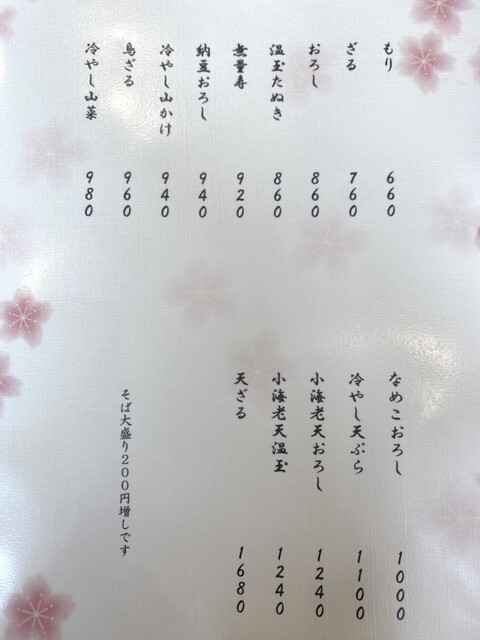 もり 660
ざる 760
おろし 860
温玉たぬき 860
無量寿 920
納豆おろし 940
冷やし山かけ 940
鳥ざる 960
冷やし山菜 980
なめこおろし 1000
冷やし天ぷら 1100
小海老天おろし 1240
小海老天温玉 1240
天ざる 1680
そば大盛り200円増しです